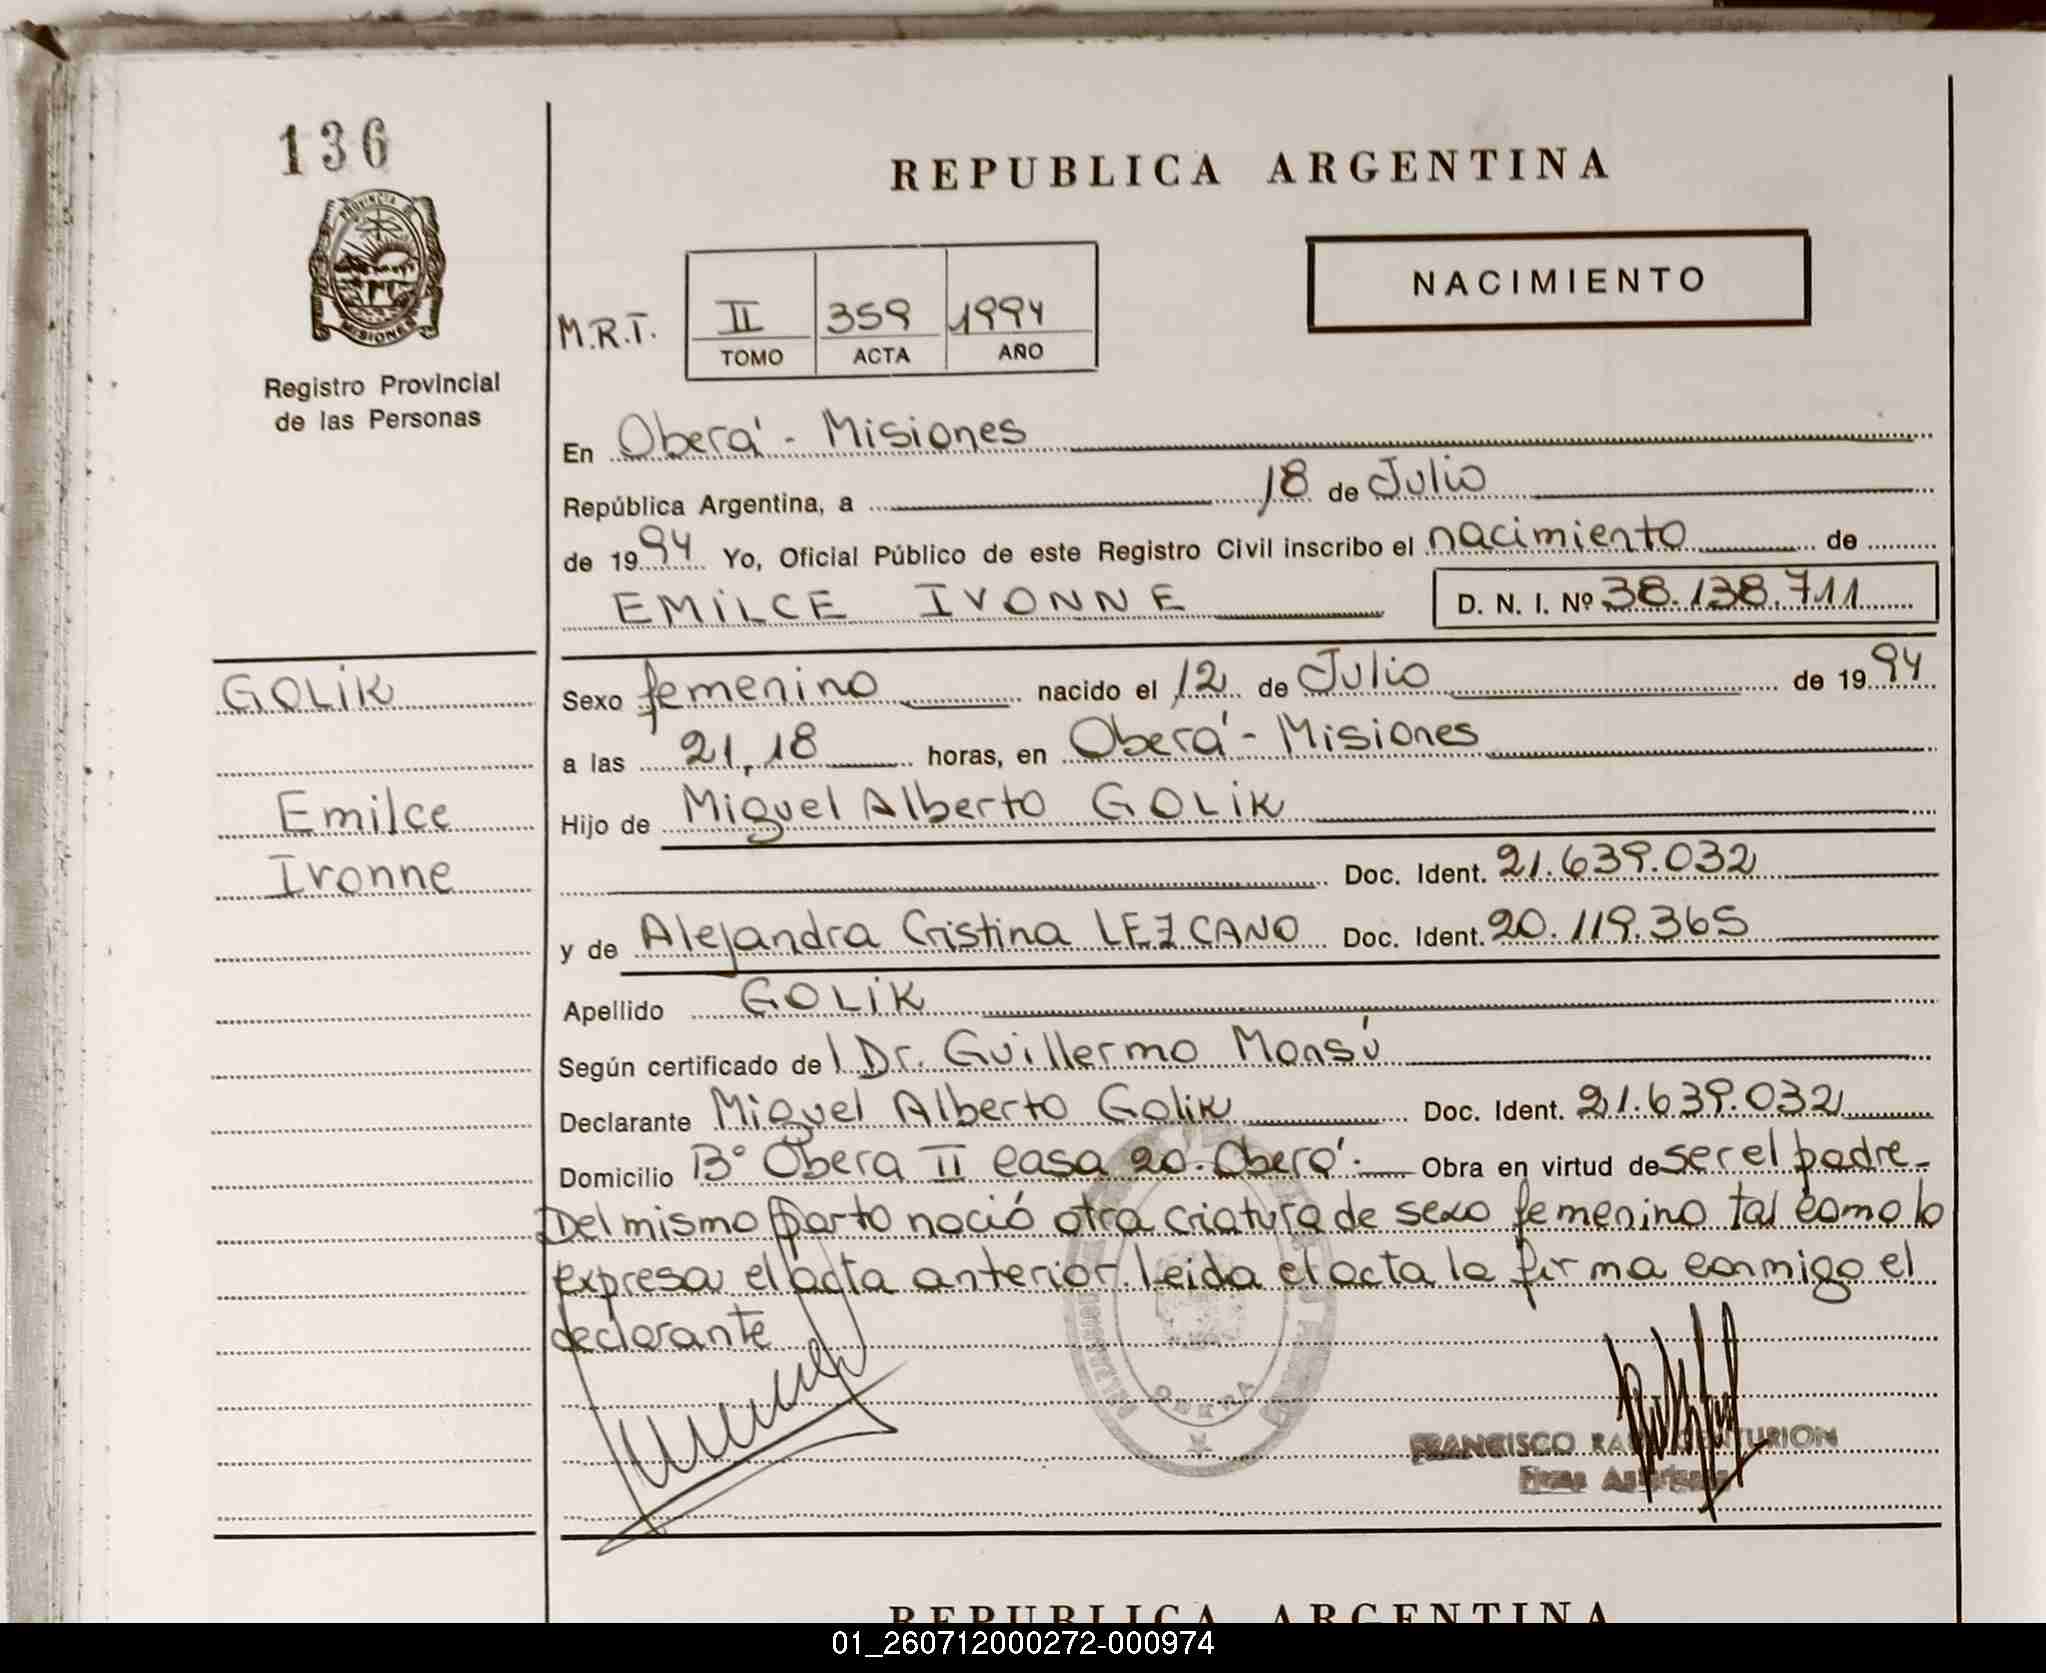 136
REPUBLICA ARGENTINA
PROVINCIA DE
MISIONES
Registro Provincial
de las Personas
NACIMIENTO
M.R.T.
II 359 1994
TOMO ACTA AÑO
En Oberá - Misiones
República Argentina, a 18 de Julio
de 1994 Yo, Oficial Público de este Registro Civil inscribo el nacimiento de
EMILCE IVONNE D. N. I. Nº 38.138.711
GOLIK
Emilce
Ivonne
Sexo femenino nacido el 12 de Julio de 1994
a las 21,18 horas, en Oberá - Misiones
Hijo de Miguel Alberto GOLIK
Doc. Ident. 21.639.032
y de Alejandra Cristina LEZCANO Doc. Ident. 20.119.365
Apellido GOLIK
Según certificado del Dr. Guillermo Monsú
Declarante Miguel Alberto Golik Doc. Ident. 21.639.032
Domicilio Bº Obera II casa 20. Oberá. Obra en virtud de ser el padre
Del mismo parto nació otra criatura de sexo femenino tal como lo
expresa el acta anterior. leida el acta la firma conmigo el
declarante
OBERA
FRANCISCO
REPUBLICA ARGENTINA
01_260712000272-000974